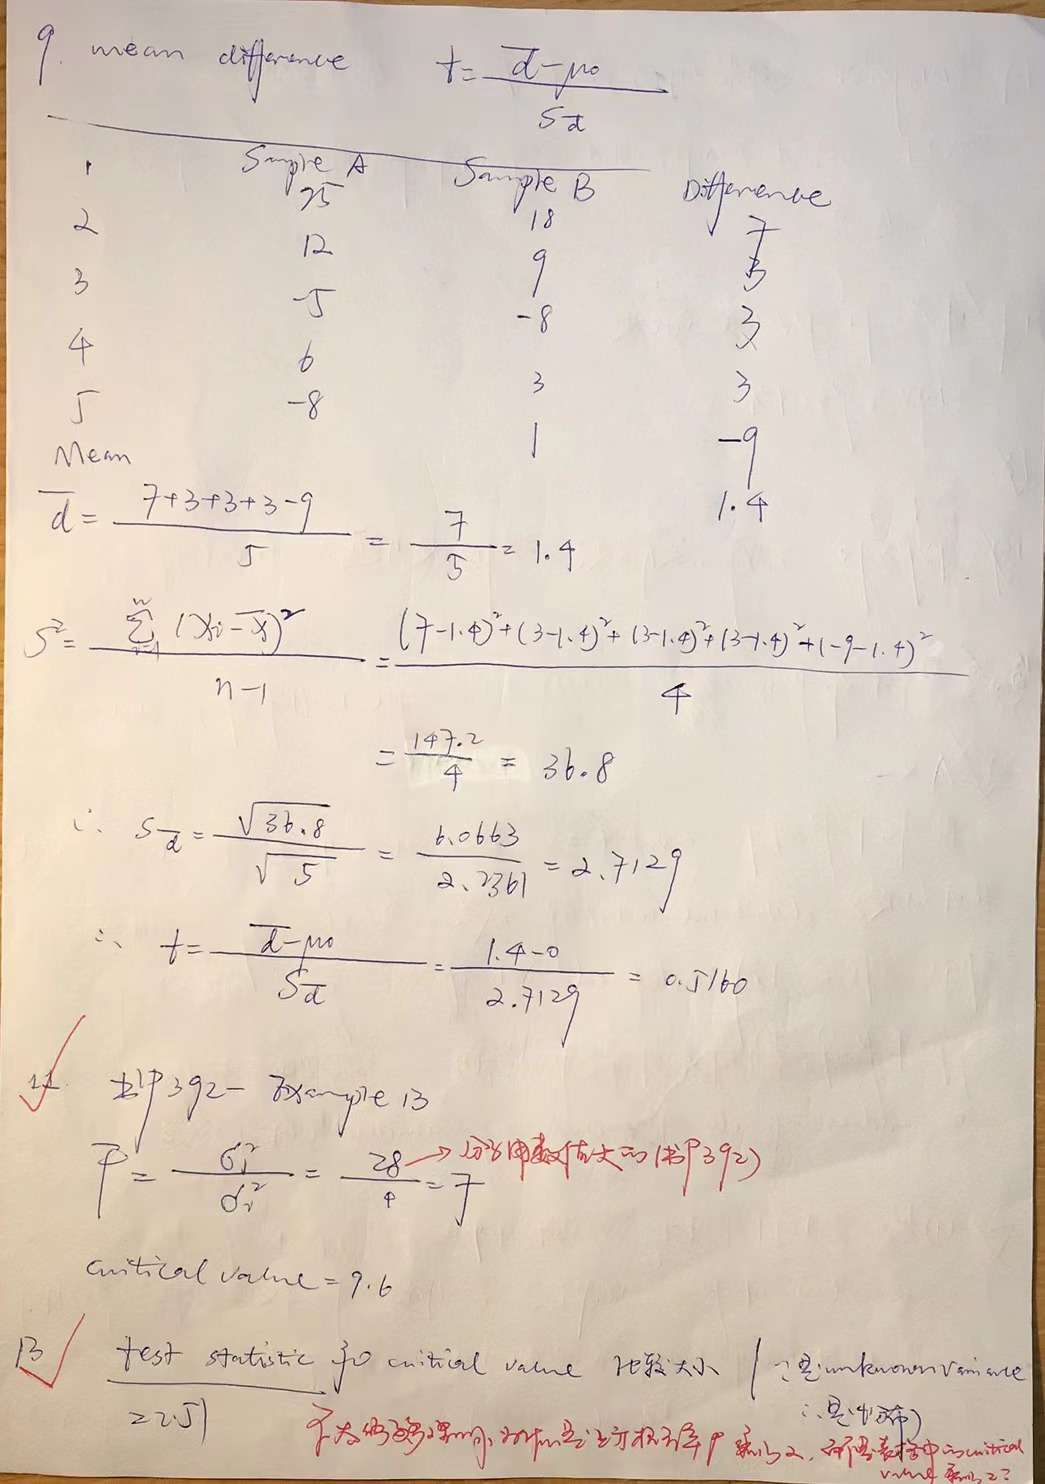 9. mean difference t = (d̄ - μ0) / S_d̄
Sample A Sample B Difference
1 25 18 7
2 12 9 3
3 -5 -8 3
4 6 3 3
5 -8 1 -9
Mean 1.4
d̄ = (7+3+3+3-9) / 5 = 7/5 = 1.4
S² = Σ(xi - x̄)² / (n-1) = ((7-1.4)² + (3-1.4)² + (3-1.4)² + (3-1.4)² + (-9-1.4)²) / 4
= 147.2 / 4 = 36.8
∴ S_d̄ = √36.8 / √5 = 6.0663 / 2.2361 = 2.7129
∴ t = (d̄ - μ0) / S_d̄ = (1.4-0) / 2.7129 = 0.5160
书P392 - Example 13
F = σ1² / σ2² = 28/4 = 7 → 分子用数值大的 (书P392)
critical value = 9.6
13 test statistic 和 critical value 比较大小 / ∵是unknown variance
=2.51 ∴是
critical
value 乘以2?